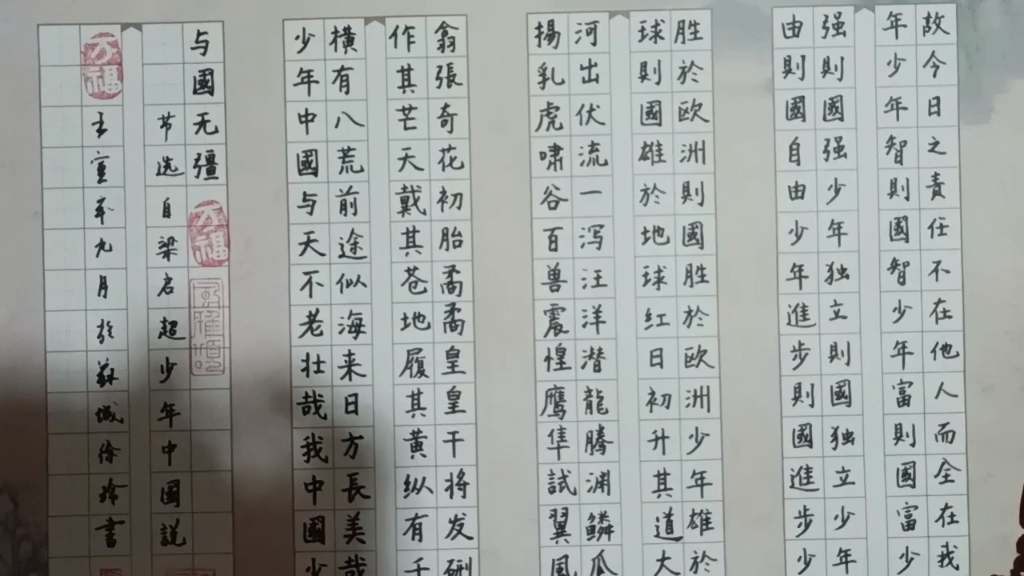 故今日之責任不在他人而全在我
年少年智則國智少年富則國富少
强則國强少年独立則國独立少年
由則國自由少年進步則國進步少
胜於欧洲則國胜於欧洲少年雄於
球則國雄於地球红日初升其道大
河出伏流一泻汪洋潜龍腾渊鳞瓜
揚乳虎啸谷百兽震惶鹰隼試翼風
翕張奇花初胎矞矞皇皇干将发硎
作其芒天戴其苍地履其黄纵有千
横有八荒前途似海来日方長美哉
少年中國与天不老壮哉我中國少
与國无彊
万福
节选自梁启超少年中國説
万福
壬寅年九月於蘇城徐玲書